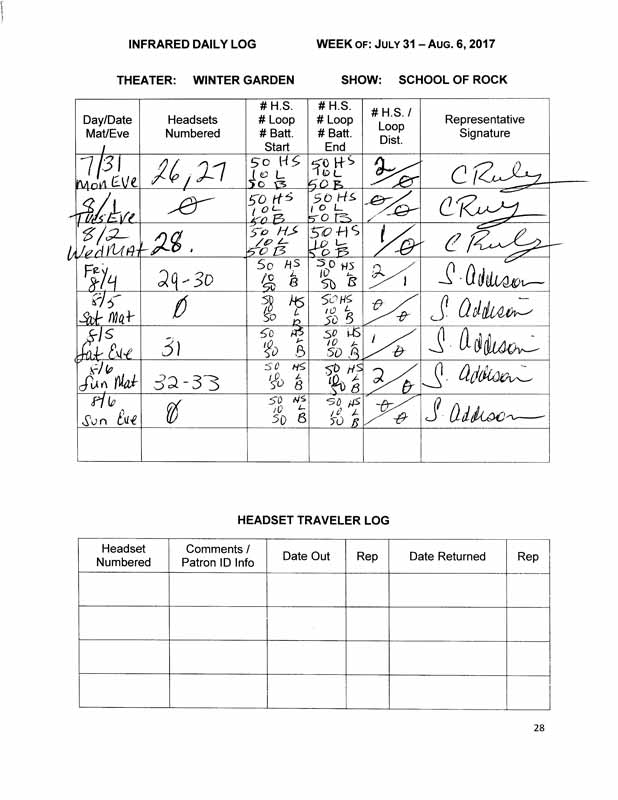 INFRARED DAILY LOG WEEK OF: JULY 31 – AUG. 6, 2017
THEATER: WINTER GARDEN SHOW: SCHOOL OF ROCK
Day/Date Mat/Eve | Headsets Numbered | # H.S. # Loop # Batt. Start | # H.S. # Loop # Batt. End | # H.S. / Loop Dist. | Representative Signature
7/31 Mon Eve | 26, 27 | 50 HS 10 L 50 B | 50 HS 10 L 50 B | 2/0 | C Ruly
8/1 Tues Eve | 0 | 50 HS 10 L 50 B | 50 HS 10 L 50 B | 0/0 | C Ruly
8/2 Wed MAT | 28. | 50 HS 10 L 50 B | 50 HS 10 L 50 B | 1/0 | C Ruly
FRY 8/4 | 29-30 | 50 HS 10 L 50 B | 50 HS 10 L 50 B | 2/1 | S. Addison
8/5 Sat Mat | 0 | 50 HS 10 L 50 B | 50 HS 10 L 50 B | 0/0 | S. Addison
8/5 Sat Eve | 31 | 50 HS 10 L 50 B | 50 HS 10 L 50 B | 1/0 | S. Addison
8/6 Sun Mat | 32-33 | 50 HS 10 L 50 B | 50 HS 10 L 50 B | 2/0 | S. Addison
8/6 Sun Eve | 0 | 50 HS 10 L 50 B | 50 HS 10 L 50 B | 0/0 | S. Addison
HEADSET TRAVELER LOG
Headset Numbered | Comments / Patron ID Info | Date Out | Rep | Date Returned | Rep
28